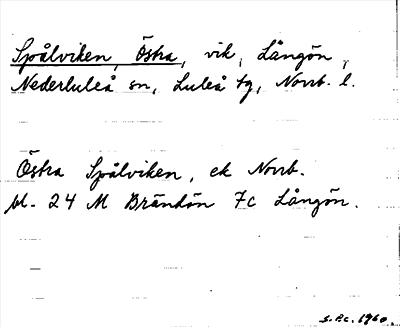 Spålviken, Östra, vik, Långön,
Nederluleå sn, Luleå tg, Norrb. l.
Östra Spålviken, ek Norrb.
bl. 24 M Brändön 7c Långön.
S.Pc. 1960.